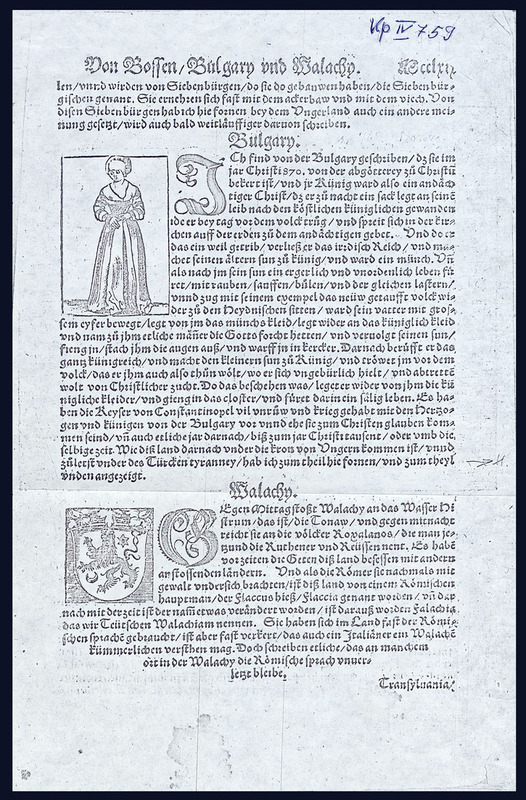 Kp IV 759
Von Bossen/Bulgary vnd Walachy.
len/vnnd wirden von Siebenbürgen/do sie do gebauwen haben/die Siebenbür-
gischen genant. Sie ernehren sich fast mit dem ackerbaw vnd mit dem viech. Von
disen Siebenbürgen hab ich hie fornen bey dem Vngerland auch ein andere mei-
nung gesetzt/wird auch bald weitläuffiger daruon schreiben.
Bulgary.
ICh find von der Bulgary geschriben/dz sie im
jar Christi 870. von der abgötterey zu Christū
bekert ist/vnd jr Künig ward also ein andäch
tiger Christ/dz er zu nacht ein sack legt an seinē
leib nach den köstlichen küniglichen gewanden
/die er bey tag vor dem volck trūg/vnd spreit sich in der kir-
chen auff der erden zu dem andächtigen gebet. Vnd do er
das ein weil getrib/verließ er das irdisch Reich/vnd
chet seinen ältern sun zu künig/vnd ward ein münch. Vn̄
als nach jm sein sun ein ergerlich vnd vnordenlich leben fü
ret/mit rauben/sauffen/bülen/vnd der gleichen lastern/
vnnd zug mit seinem exempel das neüw getaufft volck wi-
der zu den Heydnischen sitten/ward sein vatter mit gros-
sem eyfer bewegt/legt von jm das münchs kleid/legt wider an das küniglich kleid
vnd nam zu jhm etliche männer die Gotts forcht hetten/vnd veruolgt seinen sun/
fieng jn/stach jhm die augen auß/vnd warff jn in kercker. Darnach berüfft er das
gantz künigreich/vnd macht den kleinern sun zu Künig/vnd tröwet jm vor dem
volck/das er jhm auch also thün wölt/wo er sich vngebürlich hielt/vnd abtrettē
wolt von Christlicher zucht. Do das beschehen was/leget er wider von jhm die kü
nigliche kleider/vnd gieng in das closter/vnd füret darein ein sälig leben. Es ha-
ben die Keyser von Constantinopel vil vnrüw vnd krieg gehabt mit den Hertzo-
gen vnd künigen von der Bulgary vor vnnd ehe sie zum Christen glauben kom-
men seind/vn̄ auch etliche jar darnach/biß zum jar Christi tausent/oder vmb die
selbige zeit. Wie diß land darnach vnder die kron von Vngern kommen ist/vnnd
zületst vnder des Türcken tyranney/hab ich zum theil hie fornen/vnd zum theyl
vnden angezeigt.
Walachy.
GEgen Mittag stoßt Walachy an das Wasser Hi
strum/das ist/die Tonaw/vnd gegen mitnacht
reicht sie an die völcker Roxalanos/die man je-
tzund die Ruthener vnd Reüssen nent. Es habē
vorzeiten die Geten diß land besessen mit andern
anstossenden ländern. Vnd als die Römer sie nachmals mit
gewalt vndersich brachten/ist diß land von einem Römischen
hauptman/der Flaccus hieß/Flaccia genant worden/vn̄ dar
nach mit der zeit ist der nam etwas verändert worden/ist darauß worden Falachia
das wir Teütschen Walachiam nennen. Sie haben sich im Land fast der Römi-
schen sprache gebraucht/ist aber fast verkert/das auch ein Italiäner ein Walachē
kümmerlichen verstehen mag. Doch schreiben etliche/das an manchem
ort in der Walachy die Römische sprach vnuer-
letzt bleibe.
Transyluania/